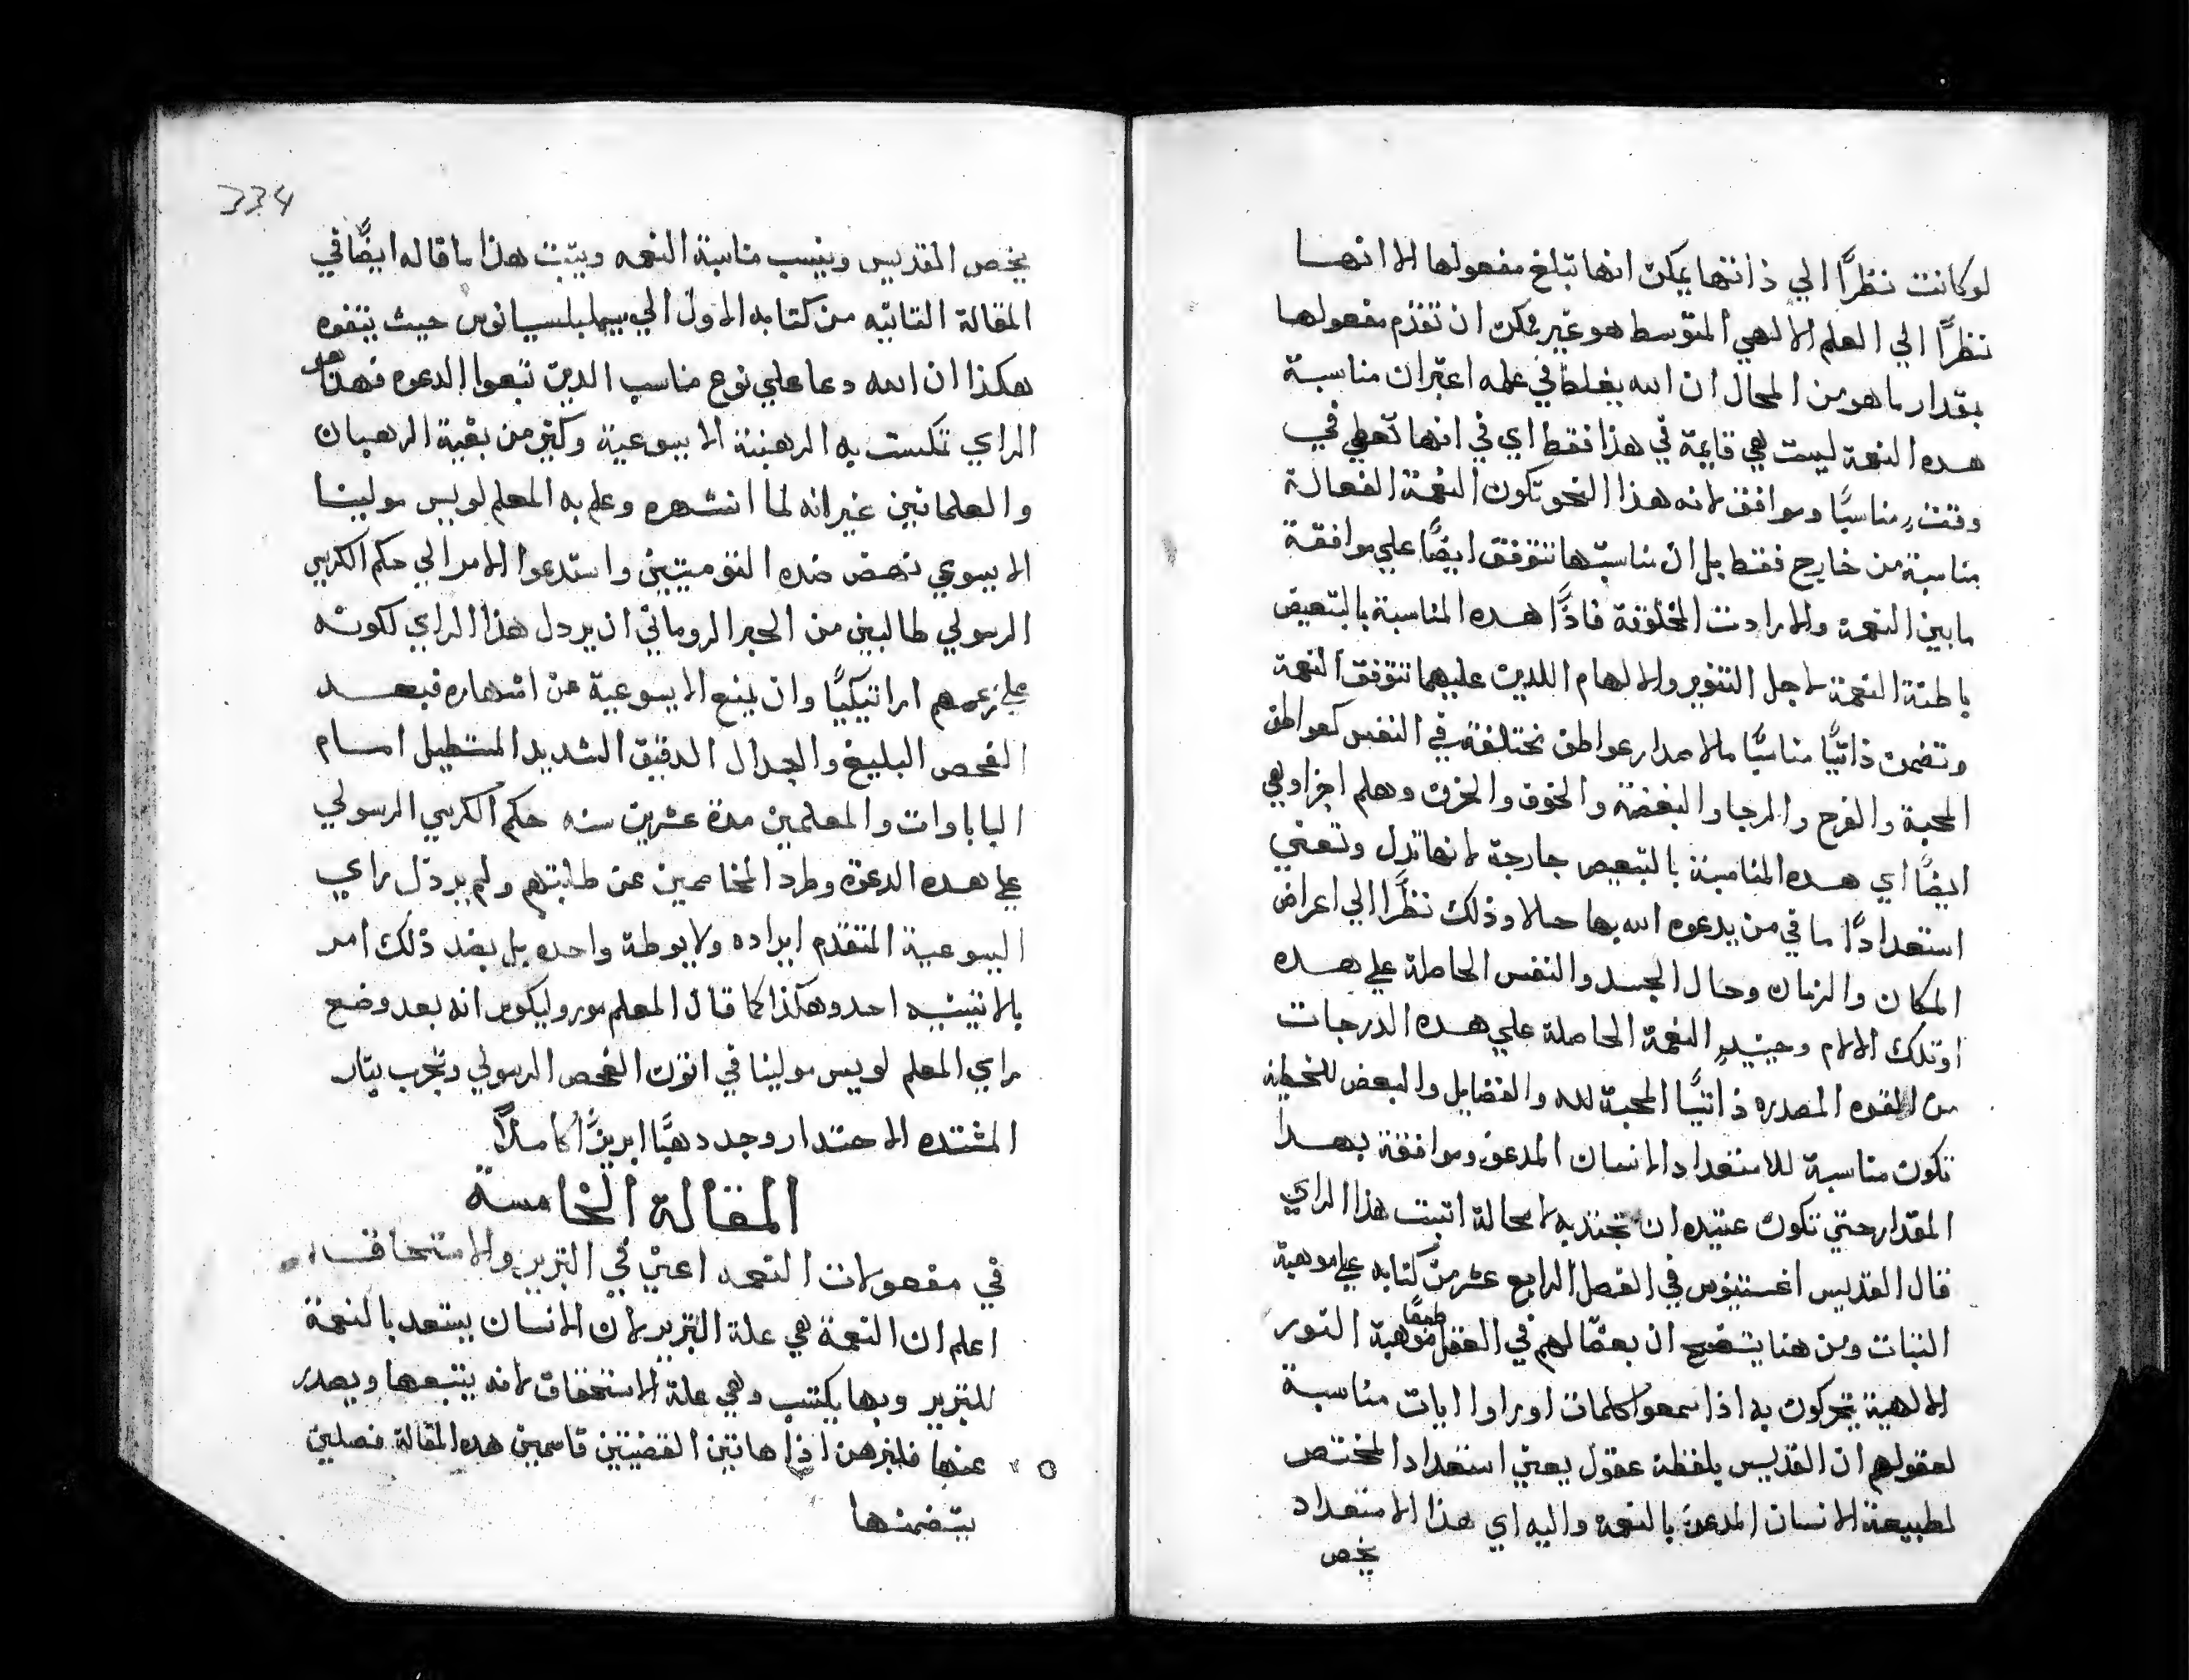 لو كانت نظرًا الي ذاتها يمكن انها تبلغ مفعولها الا انها
نظرًا الي العلم الالهي المتوسط هو غير ممكن ان تعذم مفعولها
بمقدار ما هو من المحال ان الله يغلط في علمه اعتران مناسبة
هده النعمة ليست هي قايمة في هذا فقط اي في انها تعطي في
وقتٍ مناسبًا وموافق لانه هذا النحو تكون النعمة الفعالة
مناسبة من خارج فقط بل ان مناسبتها تتوقف ايضًا علي موافقة
ما بين النعمة والارادت المخلوقة فاذًا هده المناسبة بالتبعيض
باطنة النعمة لاجل التنوير والالهام اللدين عليهما تتوقف النعمة
وتضمن ذاتيًا مناسبًا مالاصدار عواطف مختلفة في النفس كعواطف
المحبة والفرح والرجا والبغضة والخوف والحزن وهلم اجرا وهي
ايضًا اي هده المناسبة بالتبعيض خارجة لانها تدل وتعني
استعدادًا ما في من يدعوه الله بها حالا وذلك نظرًا الي اعراض
المكان والزمان وحال الجسد والنفس الحاصلة علي هده
او تلك الالام وحينيدٍ النعمة الحاصلة علي هده الدرجات
من القوه المصدره ذاتيًا المحبة لله والفضايل والبعض للخطية
تكون مناسبة للاستعداد الانسان المدعو وموافقة بهدا
المقدار حتي تكون عتيده ان تجتذبه لا محالة اتبت هذا الراي
قال القديس اغستينوس في الفصل الرابع عشر من كتابه علي موهبة
التبات ومن هنا يتضح ان بعضًا لهم في العقل طبعًا موهبة النور
الالهية يتحركون به اذا سمعوا كلمات او راوا ايات مناسبة
لعقولهم ان القديس بلفظة عقول يعني استعداد المختص
لطبيعة الانسان المدعو بالنعمة واليه اي هذا الاستعداد
يخص
334
يخص القديس وينسب مناسبة النعمه ويتبت هذا ما قاله ايضًا في
المقالة التانيه من كتابه الاول الي سيمبليسيانوس حيث يتفوه
هكذا ان الله دعا علي نوع مناسب الدين تبعوا الدعوه فهدا هو
الراي تمكست به الرهبنة الايسوعية وكتير من بقية الرهبان
والعلمانيين غير انه لما انتشهره وعلم به المعلم لويس مولينا
الايسوي نهض ضده التوميتيين واستدعوا الامر الي حكم الكرسي
الرسولي طالبين من الحبر الروماني ان يردل هذا الراي لكونه
علي زعمهم اراتيكيًا وان يمنع الايسوعية عن اشهاره فبعد
الفحص البليغ والجدال الدقيق الشديد المستطيل امام
الباباوات والمعلمين مدة عشرين سنه حكم الكرسي الرسولي
علي هده الدعوة وطرد المخاصمين عن طلبتهم ولم يردل راي
اليسوعية المتقدم ايراده ولا بوطة واحده بل بضد ذلك امر
بالا يتهه احد وهكذا كما قال المعلم موروليكوس انه بعد وضع
راي المعلم لويس مولينا في اتون الفحص الرسولي وتجرب بنار
المشتده الاحتدار وجد دهبًا ابريزًا كاملاً
المقالة الخامسة
في مفعولات النعمه اعني في التبرير والاستحاق
اعلم ان النعمة هي علة التبرير لان الانسان يستعد بالنعمة
للتبرير وبها يكتسب وهي علة الاستحقاق لانه يتبعها ويصدر
عنها فلنبرهن اذا هاتين القضيتين قاسمين هده المقالة فصلين
يتضمنها